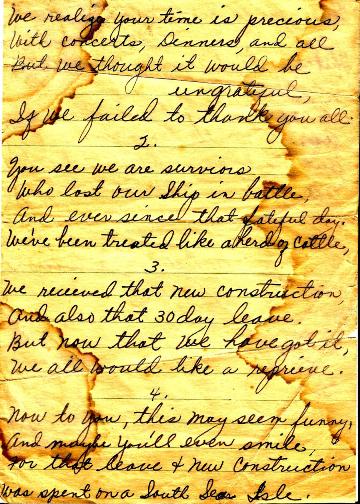 We realize your time is precious,
With concerts, Dinners, and all
But we thought it would be
ungrateful,
If we failed to thank you all.
2.
You see we are surviors
Who lost our Ship in battle,
And ever since that fateful day.
We've been treated like a herd of cattle,
3.
We recieved that new construction,
And also that 30 day leave.
But now that we have got it,
We all would like a reprieve.
4.
Now to you, this may seem funny,
And maybe you'll even smile,
For that leave + new construction
Was spent on a South Seas Isle.